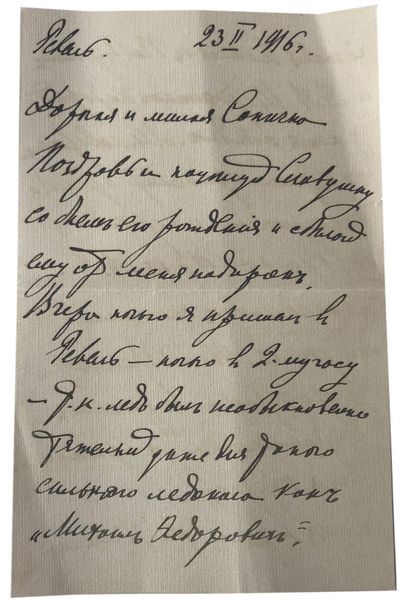 Ревель. 23 II 1916 г.
Дорогая и милая Соничка
Поздравь и поцелуй Славушку
со днемъ его рожденія и
ему от меня подарокъ.
Вчера ночью я пришелъ въ
Ревель – ночью къ 2-му часу
– т.к. ледъ былъ необыкновенно
тяжелый даже для такого
сильного ледокола какъ
„Михаилъ Федоровичъ"